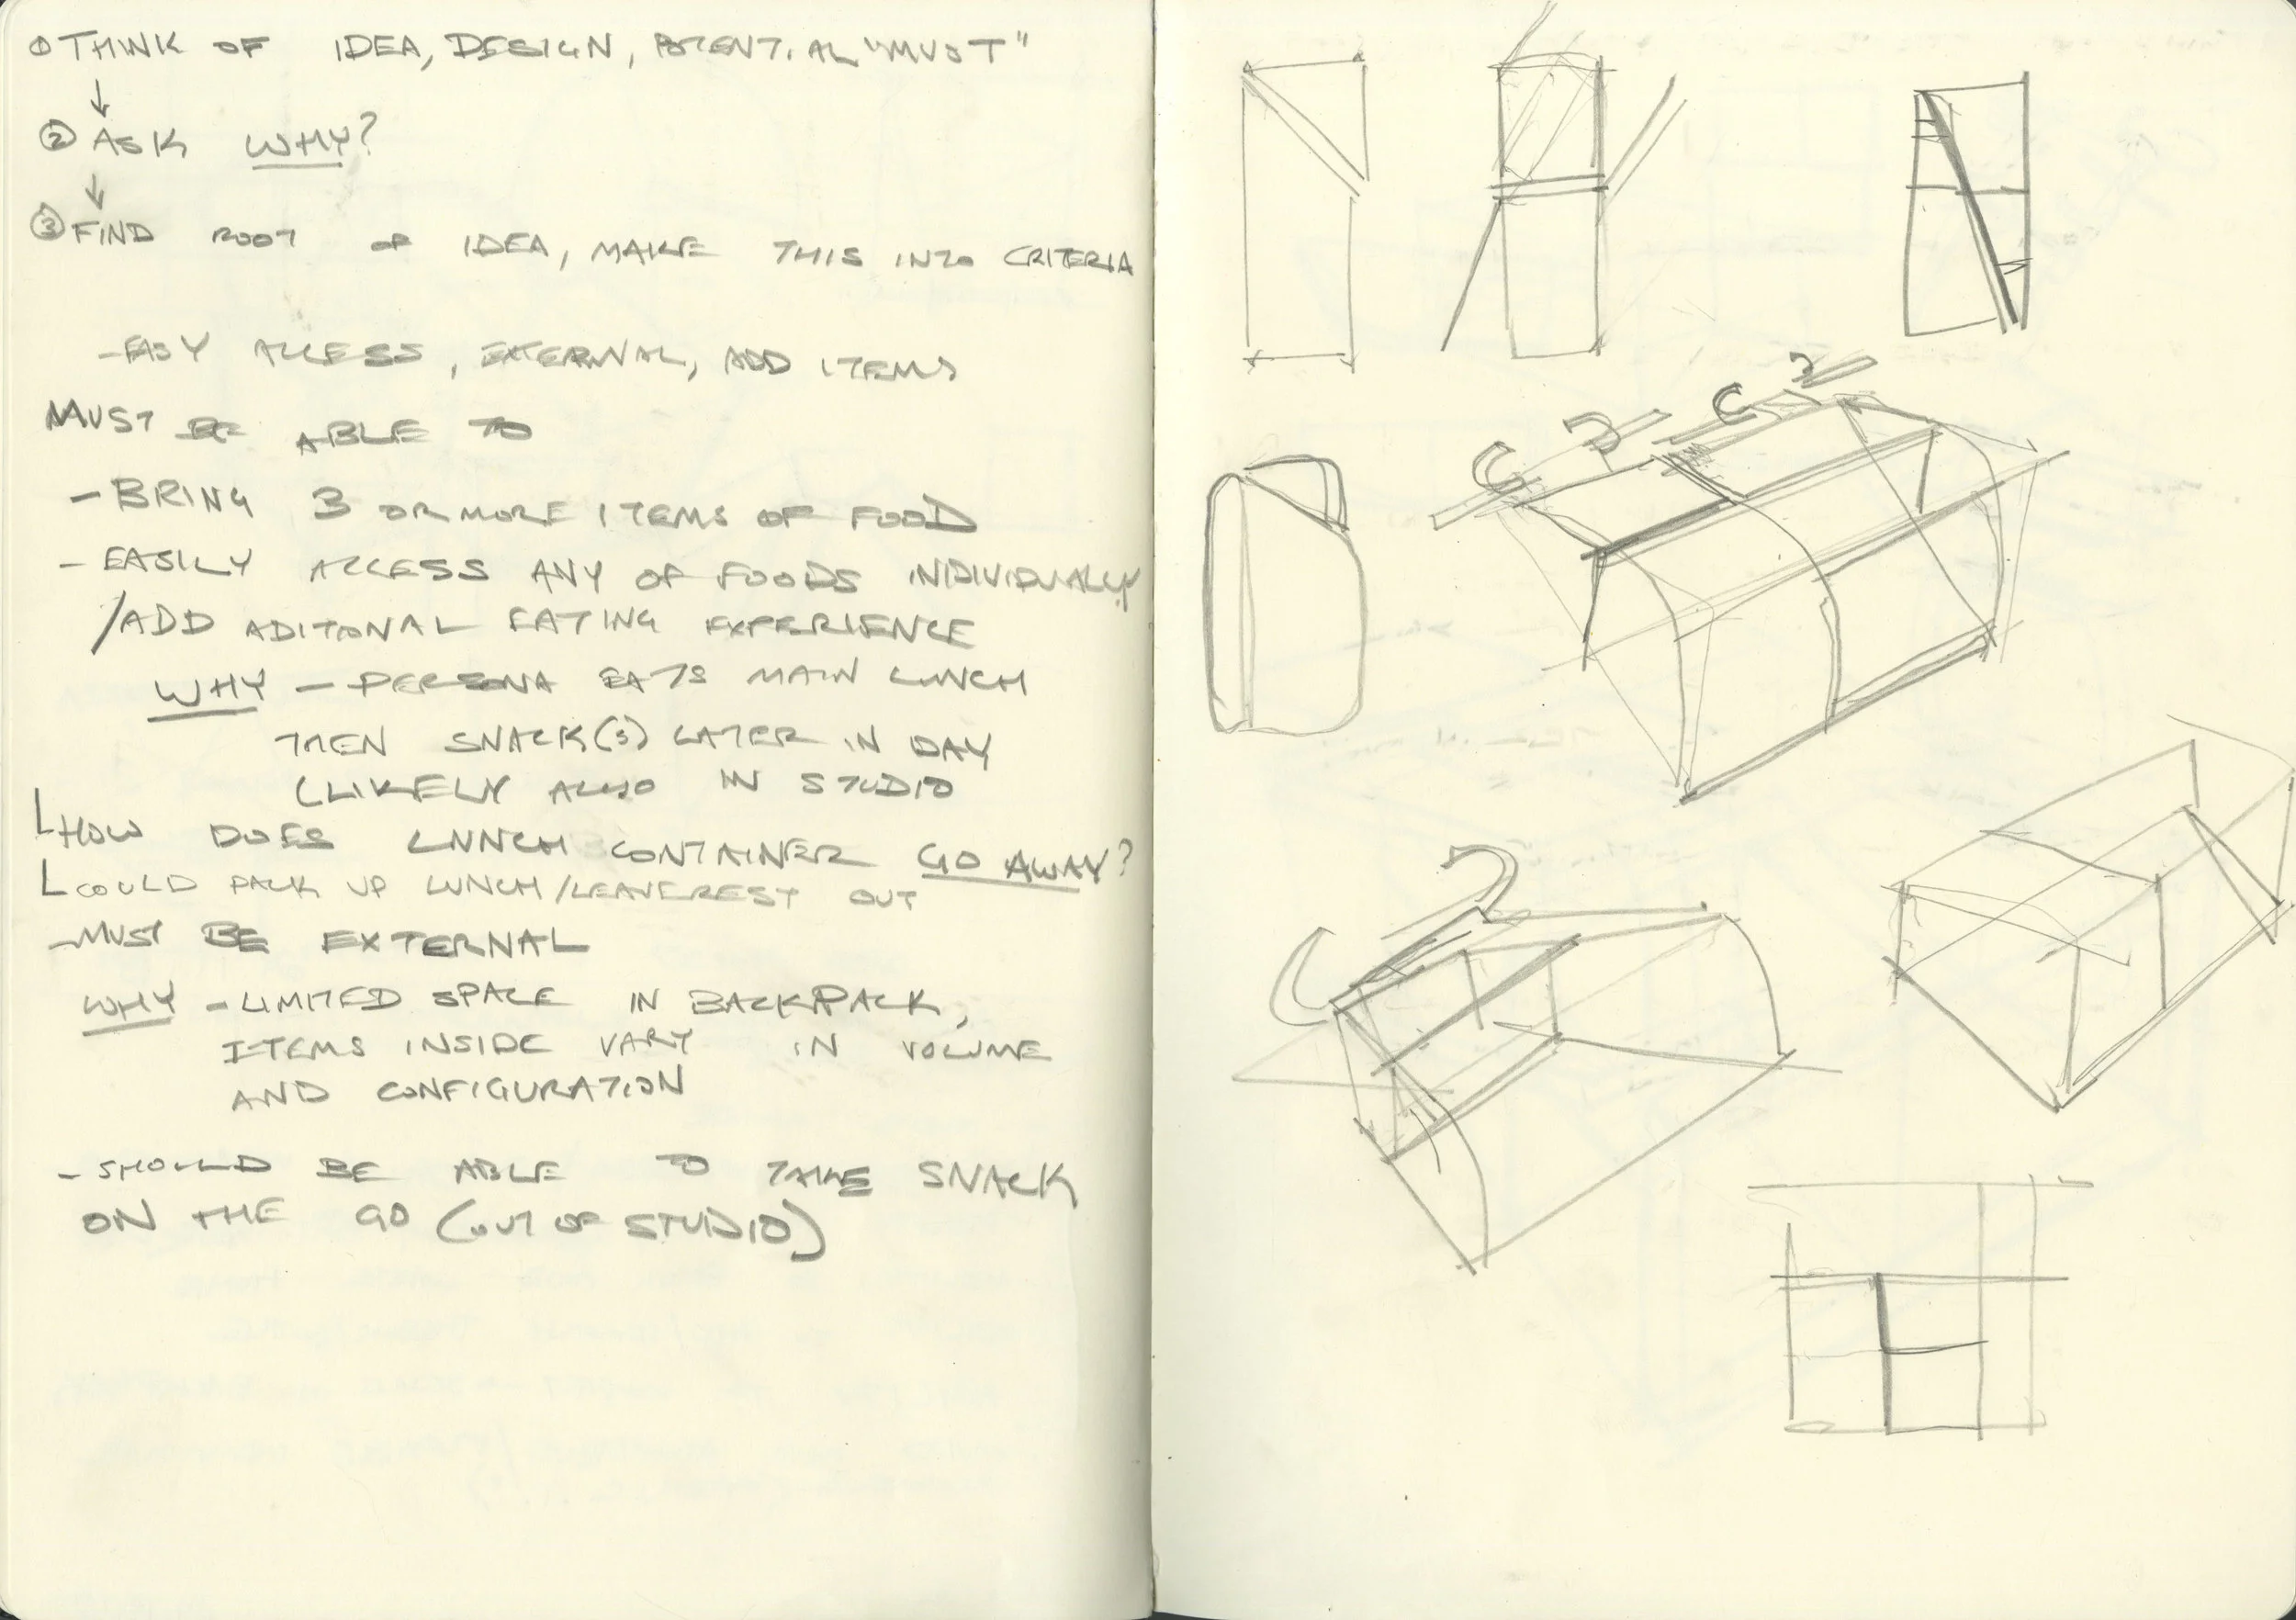 ① THINK OF IDEA, DESIGN, POTENTIAL "MUST"
↓
② ASK WHY?
↓
③ FIND ROOT OF IDEA, MAKE THIS INTO CRITERIA
- EASY ACCESS, EXTERNAL, ADD ITEMS
MUST BE ABLE TO
- BRING 3 OR MORE ITEMS OF FOOD
- EASILY ACCESS ANY OF FOODS INDIVIDUALLY
/ADD ADITIONAL EATING EXPERIENCE
WHY - PERSONA EATS MAIN LUNCH
THEN SNACK(S) LATER IN DAY
(LIKELY ALSO IN STUDIO
HOW DOES LUNCH CONTAINER GO AWAY?
COULD PACK UP LUNCH/LEAVE REST OUT
- MUST BE EXTERNAL
WHY - LIMITED SPACE IN BACKPACK,
ITEMS INSIDE VARY IN VOLUME
AND CONFIGURATION
- SHOULD BE ABLE TO TAKE SNACK
ON THE GO (OUT OF STUDIO)